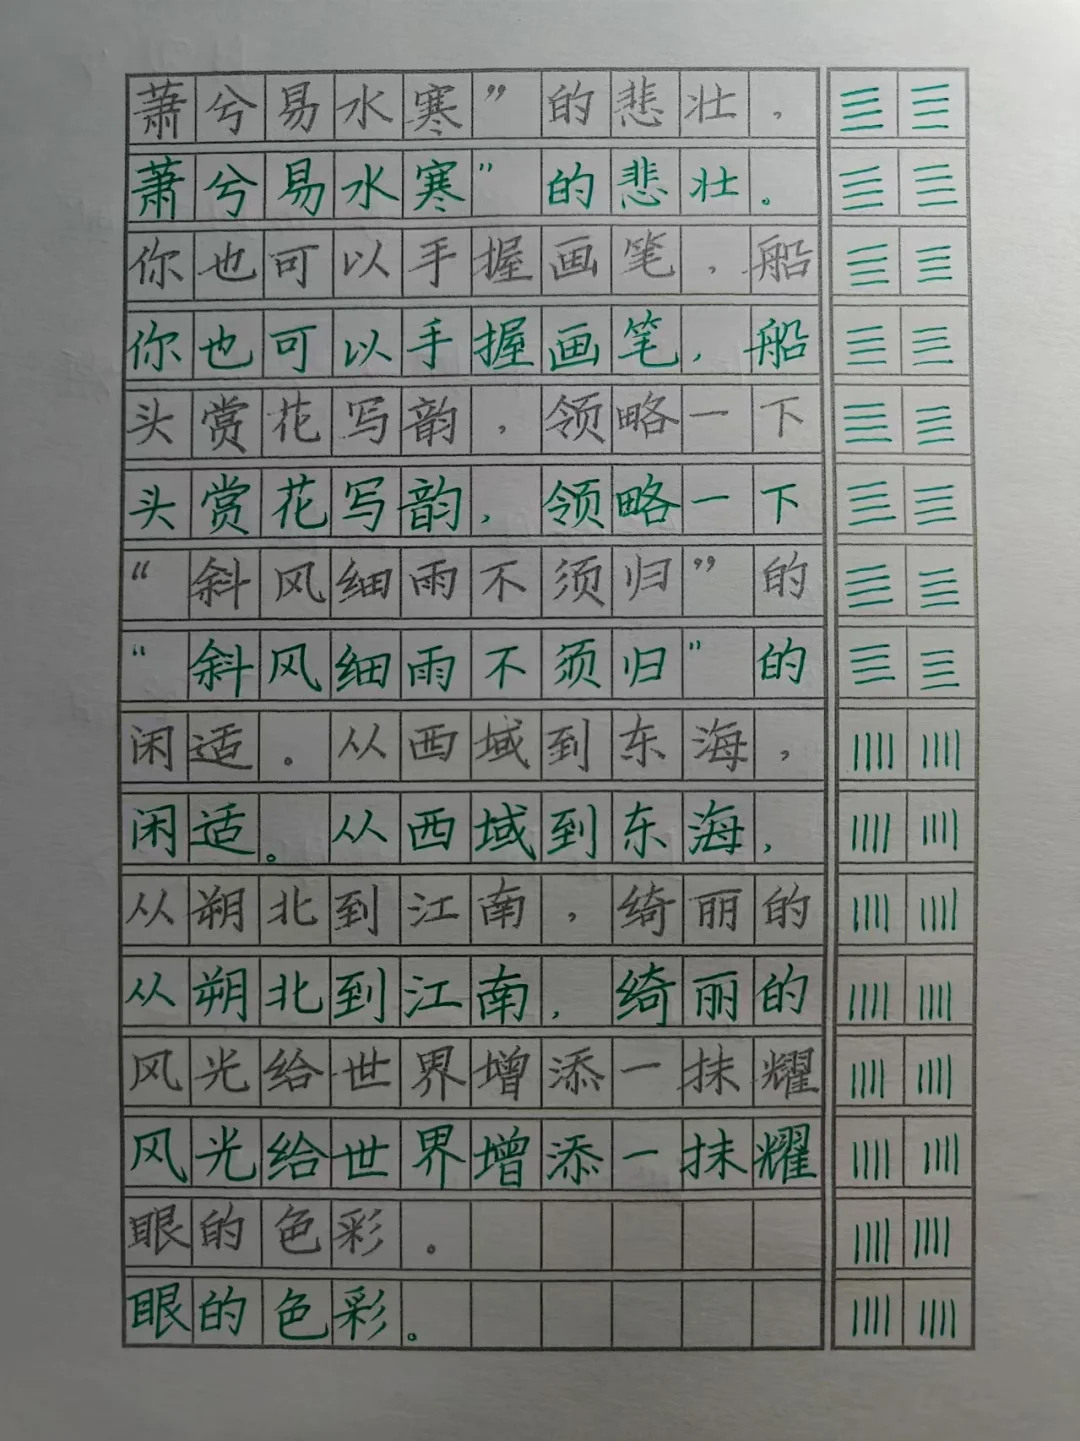 萧兮易水寒”的悲壮，
萧兮易水寒”的悲壮。
你也可以手握画笔，船
你也可以手握画笔，船
头赏花写韵，领略一下
头赏花写韵，领略一下
“斜风细雨不须归”的
“斜风细雨不须归”的
闲适。从西域到东海，
闲适。从西域到东海，
从朔北到江南，绮丽的
从朔北到江南，绮丽的
风光给世界增添一抹耀
风光给世界增添一抹耀
眼的色彩。
眼的色彩。